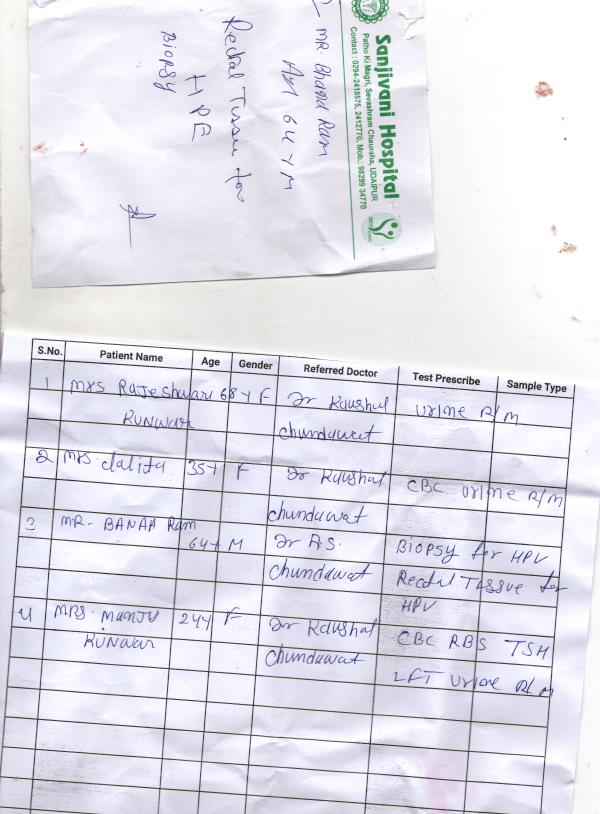 Sanjivani Hospital
Patho Ki Magri, Sevashram Chauraha, UDAIPUR
Contact : 0294-2418575, 2412770, Mob.: 98299 34770
MR Bhana Ram
64 Y M
Rectal Tissue for
HPE
Biopsy
S.No. Patient Name Age Gender Referred Doctor Test Prescribe Sample Type
1 Mrs Rajeshwari 68 Y F Dr Kaushal Urine R/M
Kunwar Chundawat
2 Mrs. Lalita 35 Y F Dr Kaushal CBC Urine R/M
Chundawat
3 MR- BANAH Ram 64 Y M Dr A.S. Biopsy for HPV
Chundawat Rectal Tissue for
HPV
4 Mrs. Manju 24 Y F Dr Kaushal CBC RBS TSH
Kunwar Chundawat
LFT Urine R/M